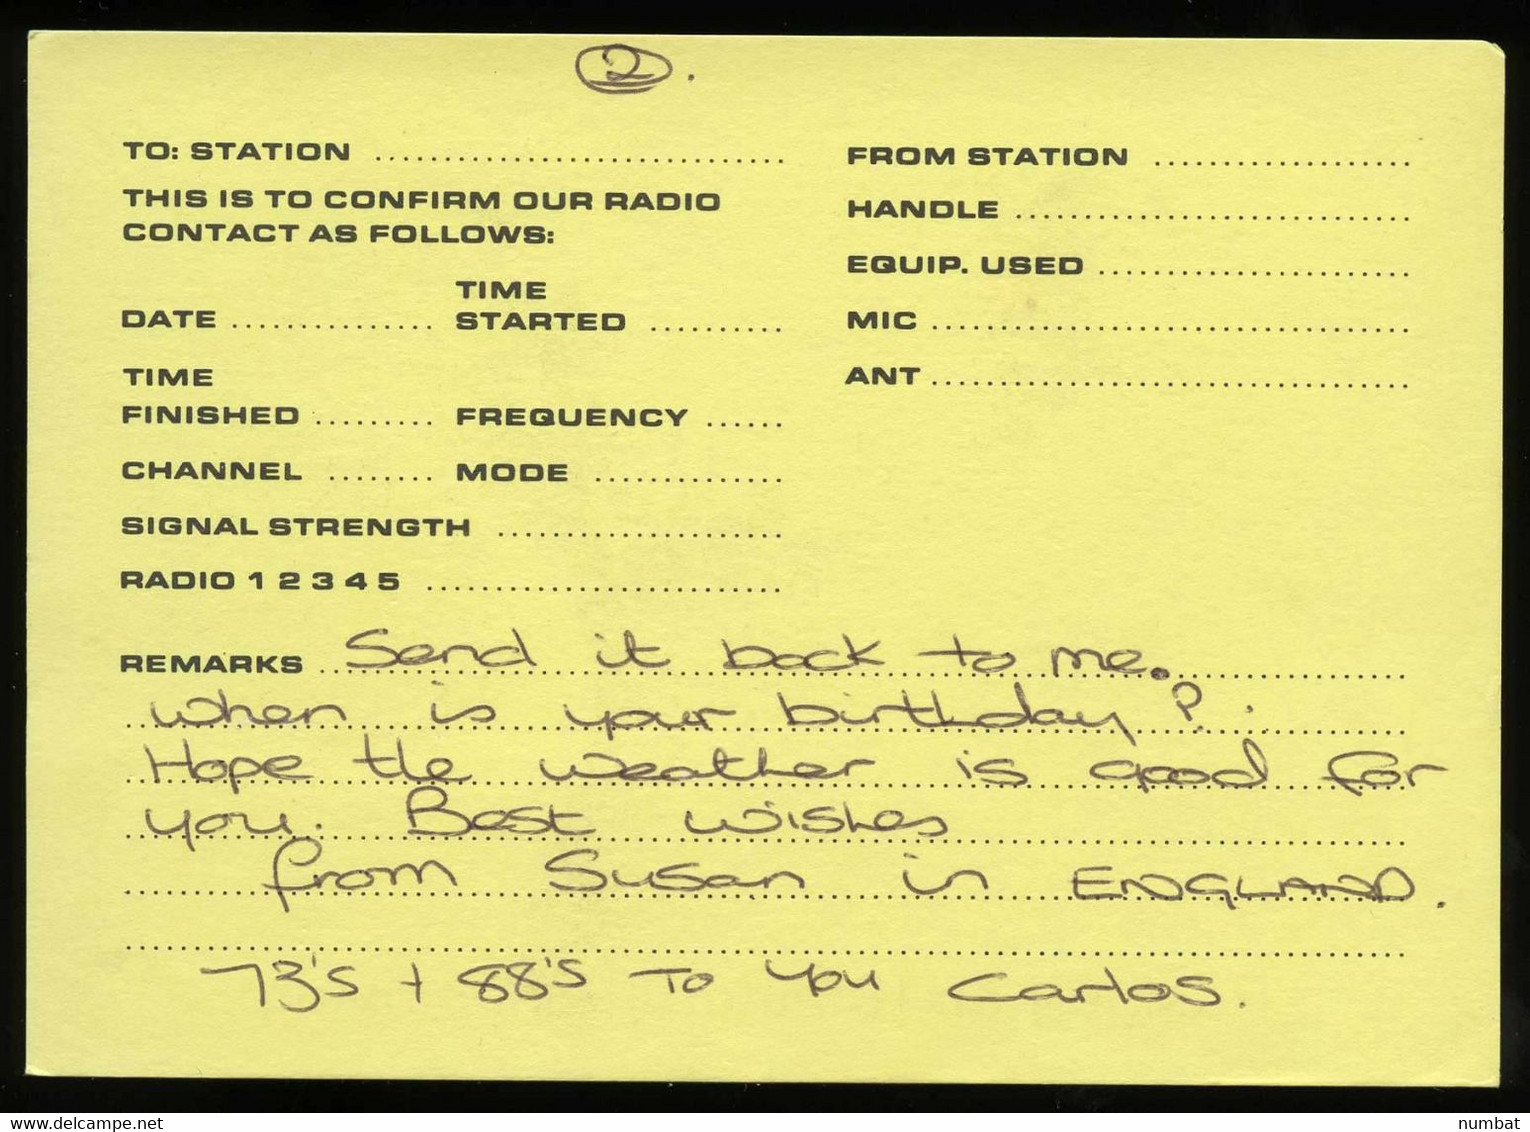 2.
TO: STATION ..............................
THIS IS TO CONFIRM OUR RADIO
CONTACT AS FOLLOWS:
DATE ............... TIME STARTED ..........
TIME FINISHED ......... FREQUENCY ......
CHANNEL ........ MODE ..............
SIGNAL STRENGTH .....................
RADIO 1 2 3 4 5 ..........................
FROM STATION ...................
HANDLE .............................
EQUIP. USED .......................
MIC ...................................
ANT ...................................
REMARKS Send it back to me.
When is your birthday?
Hope the weather is good for
you. Best wishes
from Susan in ENGLAND.
73's + 88's To You Carlos.
www.delcampe.net
numbat